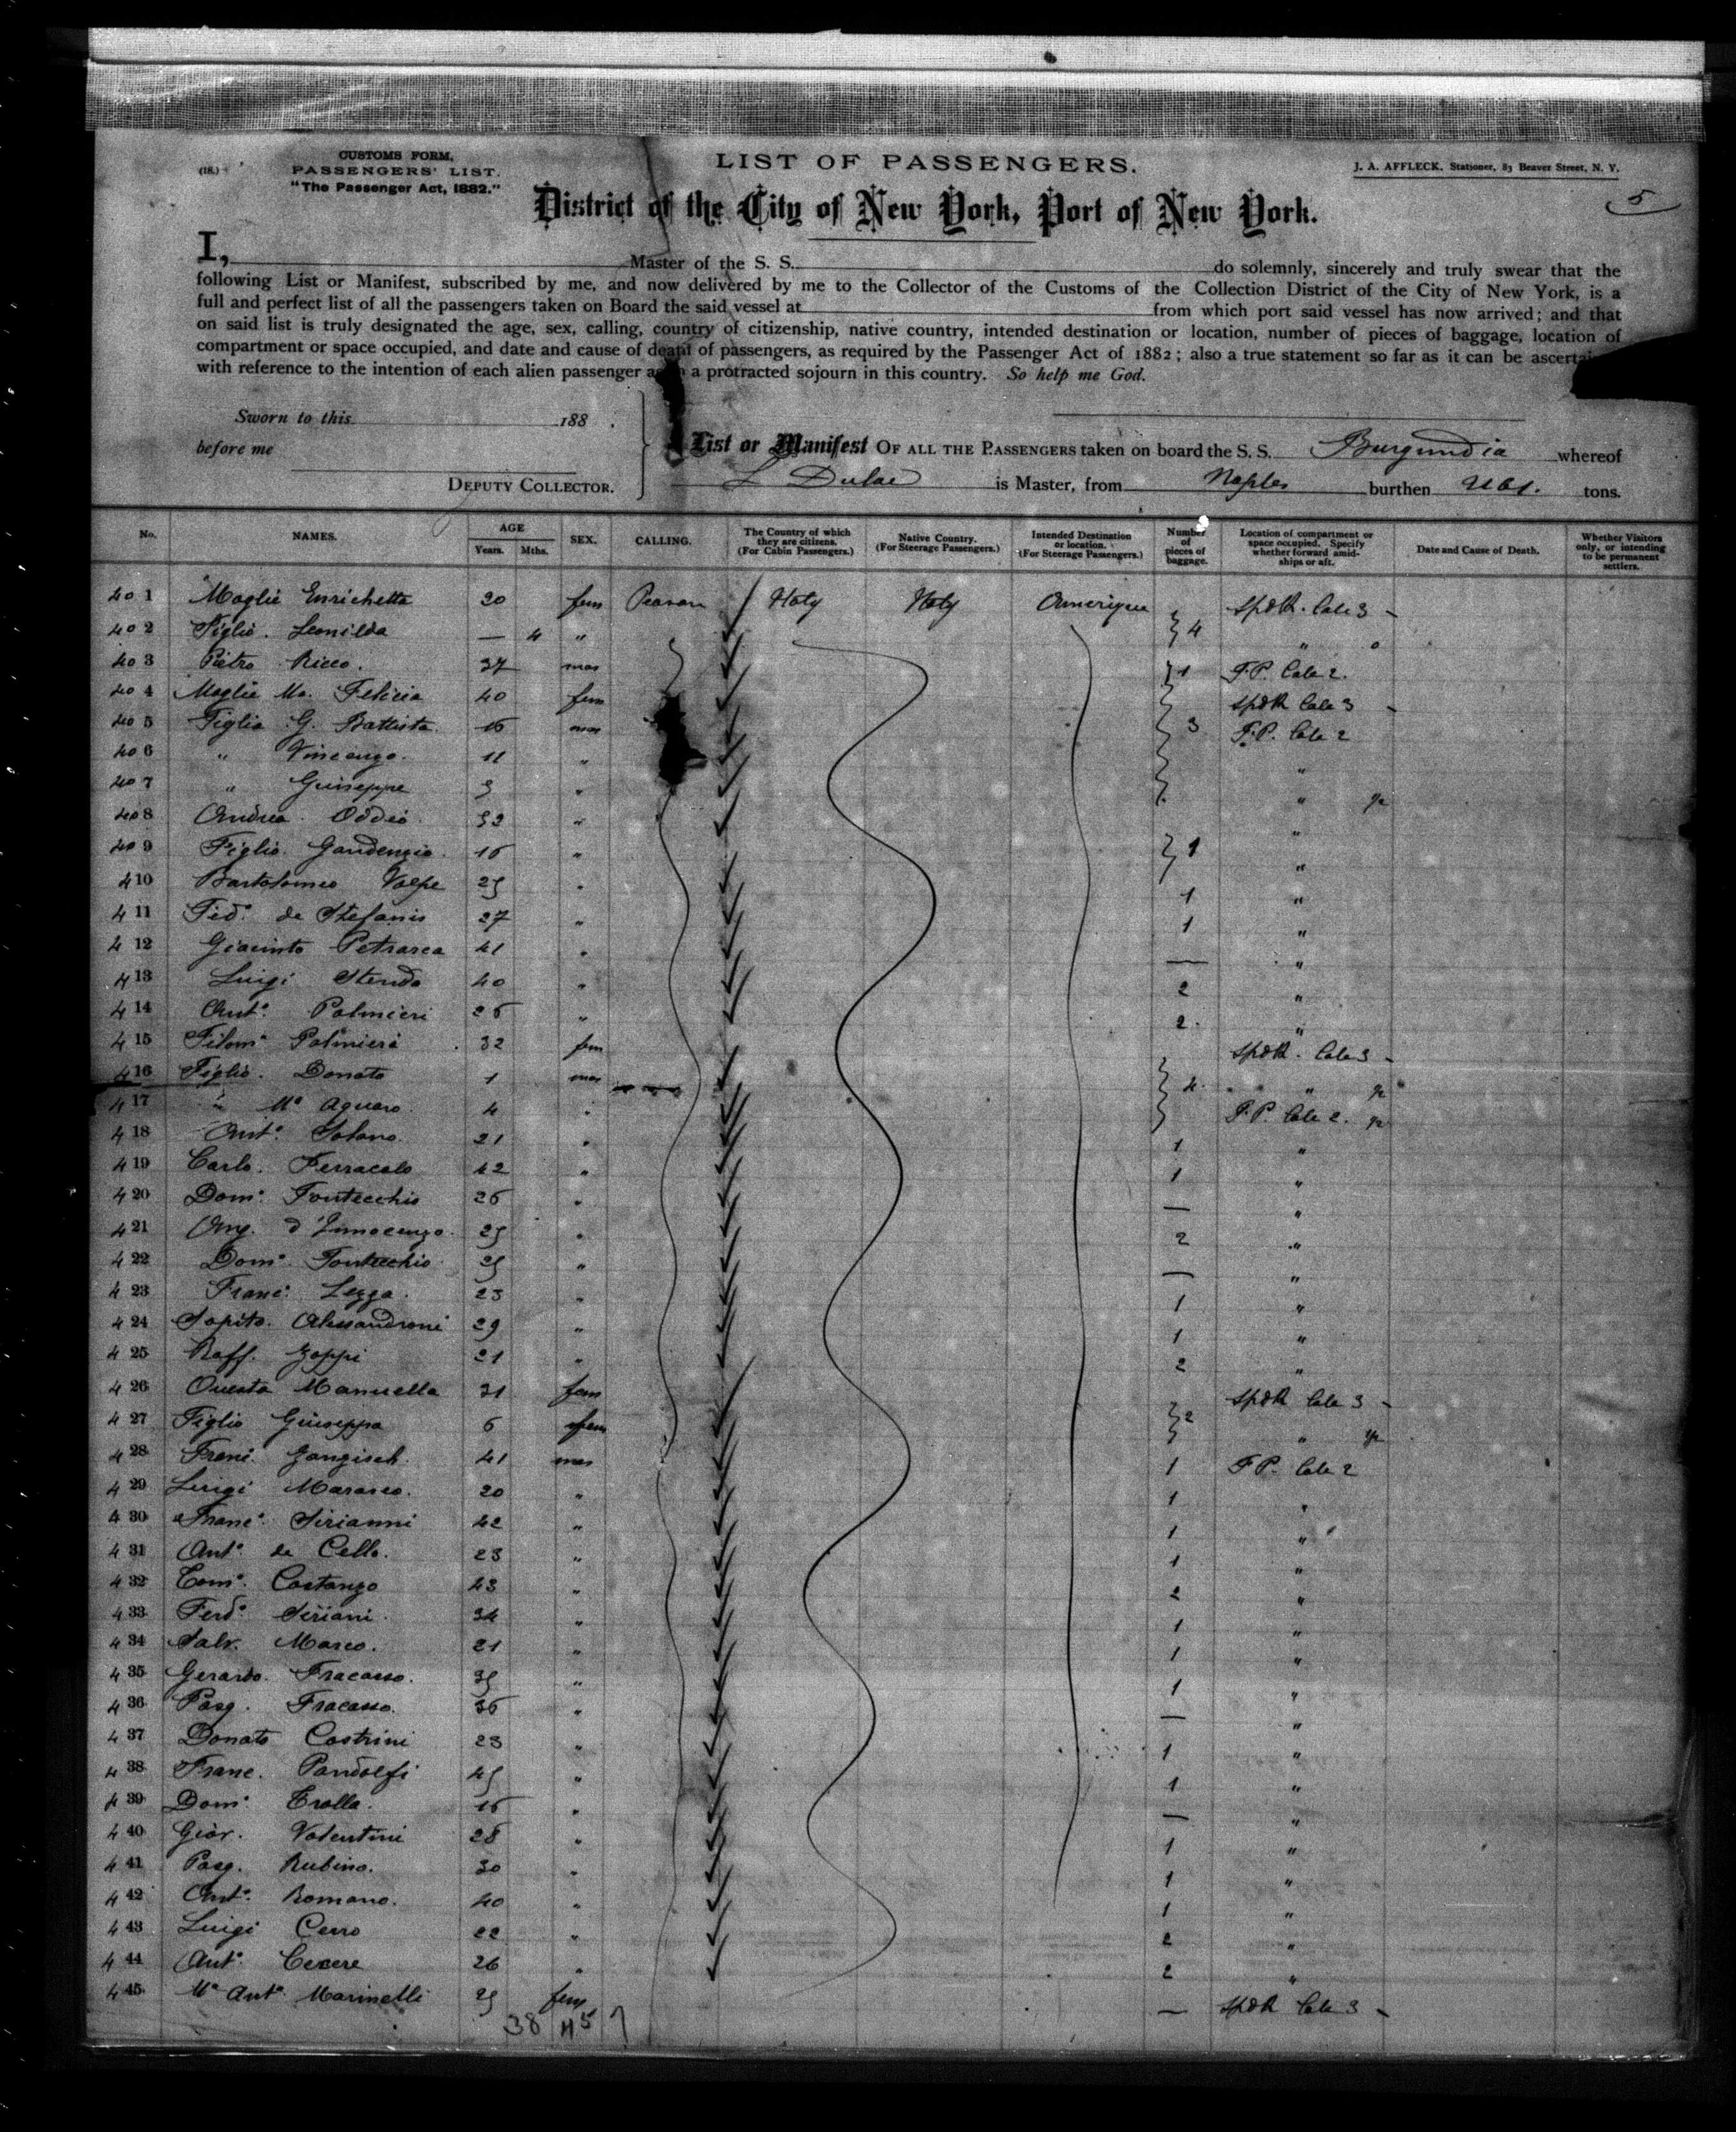 (18.)
CUSTOMS FORM,
PASSENGERS' LIST.
"The Passenger Act, 1882."
LIST OF PASSENGERS.
J. A. AFFLECK, Stationer, 83 Beaver Street, N. Y.
5
District of the City of New York, Port of New York.
I, Master of the S. S. do solemnly, sincerely and truly swear that the
following List or Manifest, subscribed by me, and now delivered by me to the Collector of the Customs of the Collection District of the City of New York, is a
full and perfect list of all the passengers taken on Board the said vessel at from which port said vessel has now arrived; and that
on said list is truly designated the age, sex, calling, country of citizenship, native country, intended destination or location, number of pieces of baggage, location of
compartment or space occupied, and date and cause of death of passengers, as required by the Passenger Act of 1882; also a true statement so far as it can be
with reference to the intention of each alien passenger a protracted sojourn in this country. So help me God.
Sworn to this 188 .
before me
DEPUTY COLLECTOR.
List or Manifest OF ALL THE PASSENGERS taken on board the S. S. Burgundia whereof
L Dulac is Master, from Naples burthen tons.
No. NAMES. AGE Years. Mths. SEX. CALLING. The Country of which they are citizens. (For Cabin Passengers.) Native Country. (For Steerage Passengers.) Intended Destination or location. (For Steerage Passengers.) Number of pieces of baggage. Location of compartment or space occupied. Specify whether forward amidships or aft. Date and Cause of Death. Whether Visitors only, or intending to be permanent settlers.
401 Moglie Enrichetta 20 fem Italy Italy Amerique Spdk. Cale 3 -
402 Figlio. Leonilda — 4 " 4 "
403 Pietro Ricco. 37 mas 1 F.P. Cale 2.
404 Moglie Ma. Felicia 40 fem Spdk Cale 3 -
405 Figlio G. Battista 16 mas 3 F.P. Cale 2
406 " Vincenzo. 11 " "
407 " Giuseppe 9 " "
408 Andrea Oddio 32 " "
409 Figlio. Gaudenzio 16 " 1 "
410 Bartolomeo Volpe 25 " 1 "
411 Fedº de Stefanis 27 " 1 "
412 Giacinto Petrarca 41 " — "
413 Luigi Stendo 40 " 2 "
414 Antº Palmieri 26 " 2 "
415 Filomª Palmieri 32 fem Spdk. Cale 3 -
416 Figlio. Donato 1 mas 4 "
417 " Mª 4 " F.P. Cale 2.
418 Antº Solano. 21 " 1 "
419 Carlo. Ferracolo 42 " 1 "
420 Domº Fontecchio 26 " — "
421 Ang. d'Innocenzo 25 " 2 "
422 Domº Fontecchio 25 " — "
423 Francº Lezza. 23 " 1 "
424 Sapito. Alessandroni 29 " 1 "
425 Raff. Zoppi 21 " 2 "
426 Questa Manuella 31 fem Spdk Cale 3 -
427 Figlio Giuseppa 6 fem 2 "
428 Franc. Gangisch 41 mas 1 F.P. Cale 2
429 Luigi Marasco. 20 " 1 "
430 Francº Sirianni 42 " 1 "
431 Antº de Cello. 23 " 1 "
432 Tomº Costanzo 43 " 2 "
433 Ferdº Siriani 34 " 1 "
434 Salv. Marco. 21 " 1 "
435 Gerardo. Fracasso. 35 " 1 "
436 Pasq. Fracasso. 36 " — "
437 Donato Castrini 23 " 1 "
438 Franc. Pandolfi 45 " 1 "
439 Domº Trolla. 16 " — "
440 Giov. Valentini 28 " 1 "
441 Pasq. Rubino. 30 " 1 "
442 Antº Romano. 40 " 1 "
443 Luigi Cerro 22 " 2 "
444 Antº Cecere 26 " 2 "
445 Mª Antª Marinelli 25 fem — Spdk Cale 3 -
38 45 7